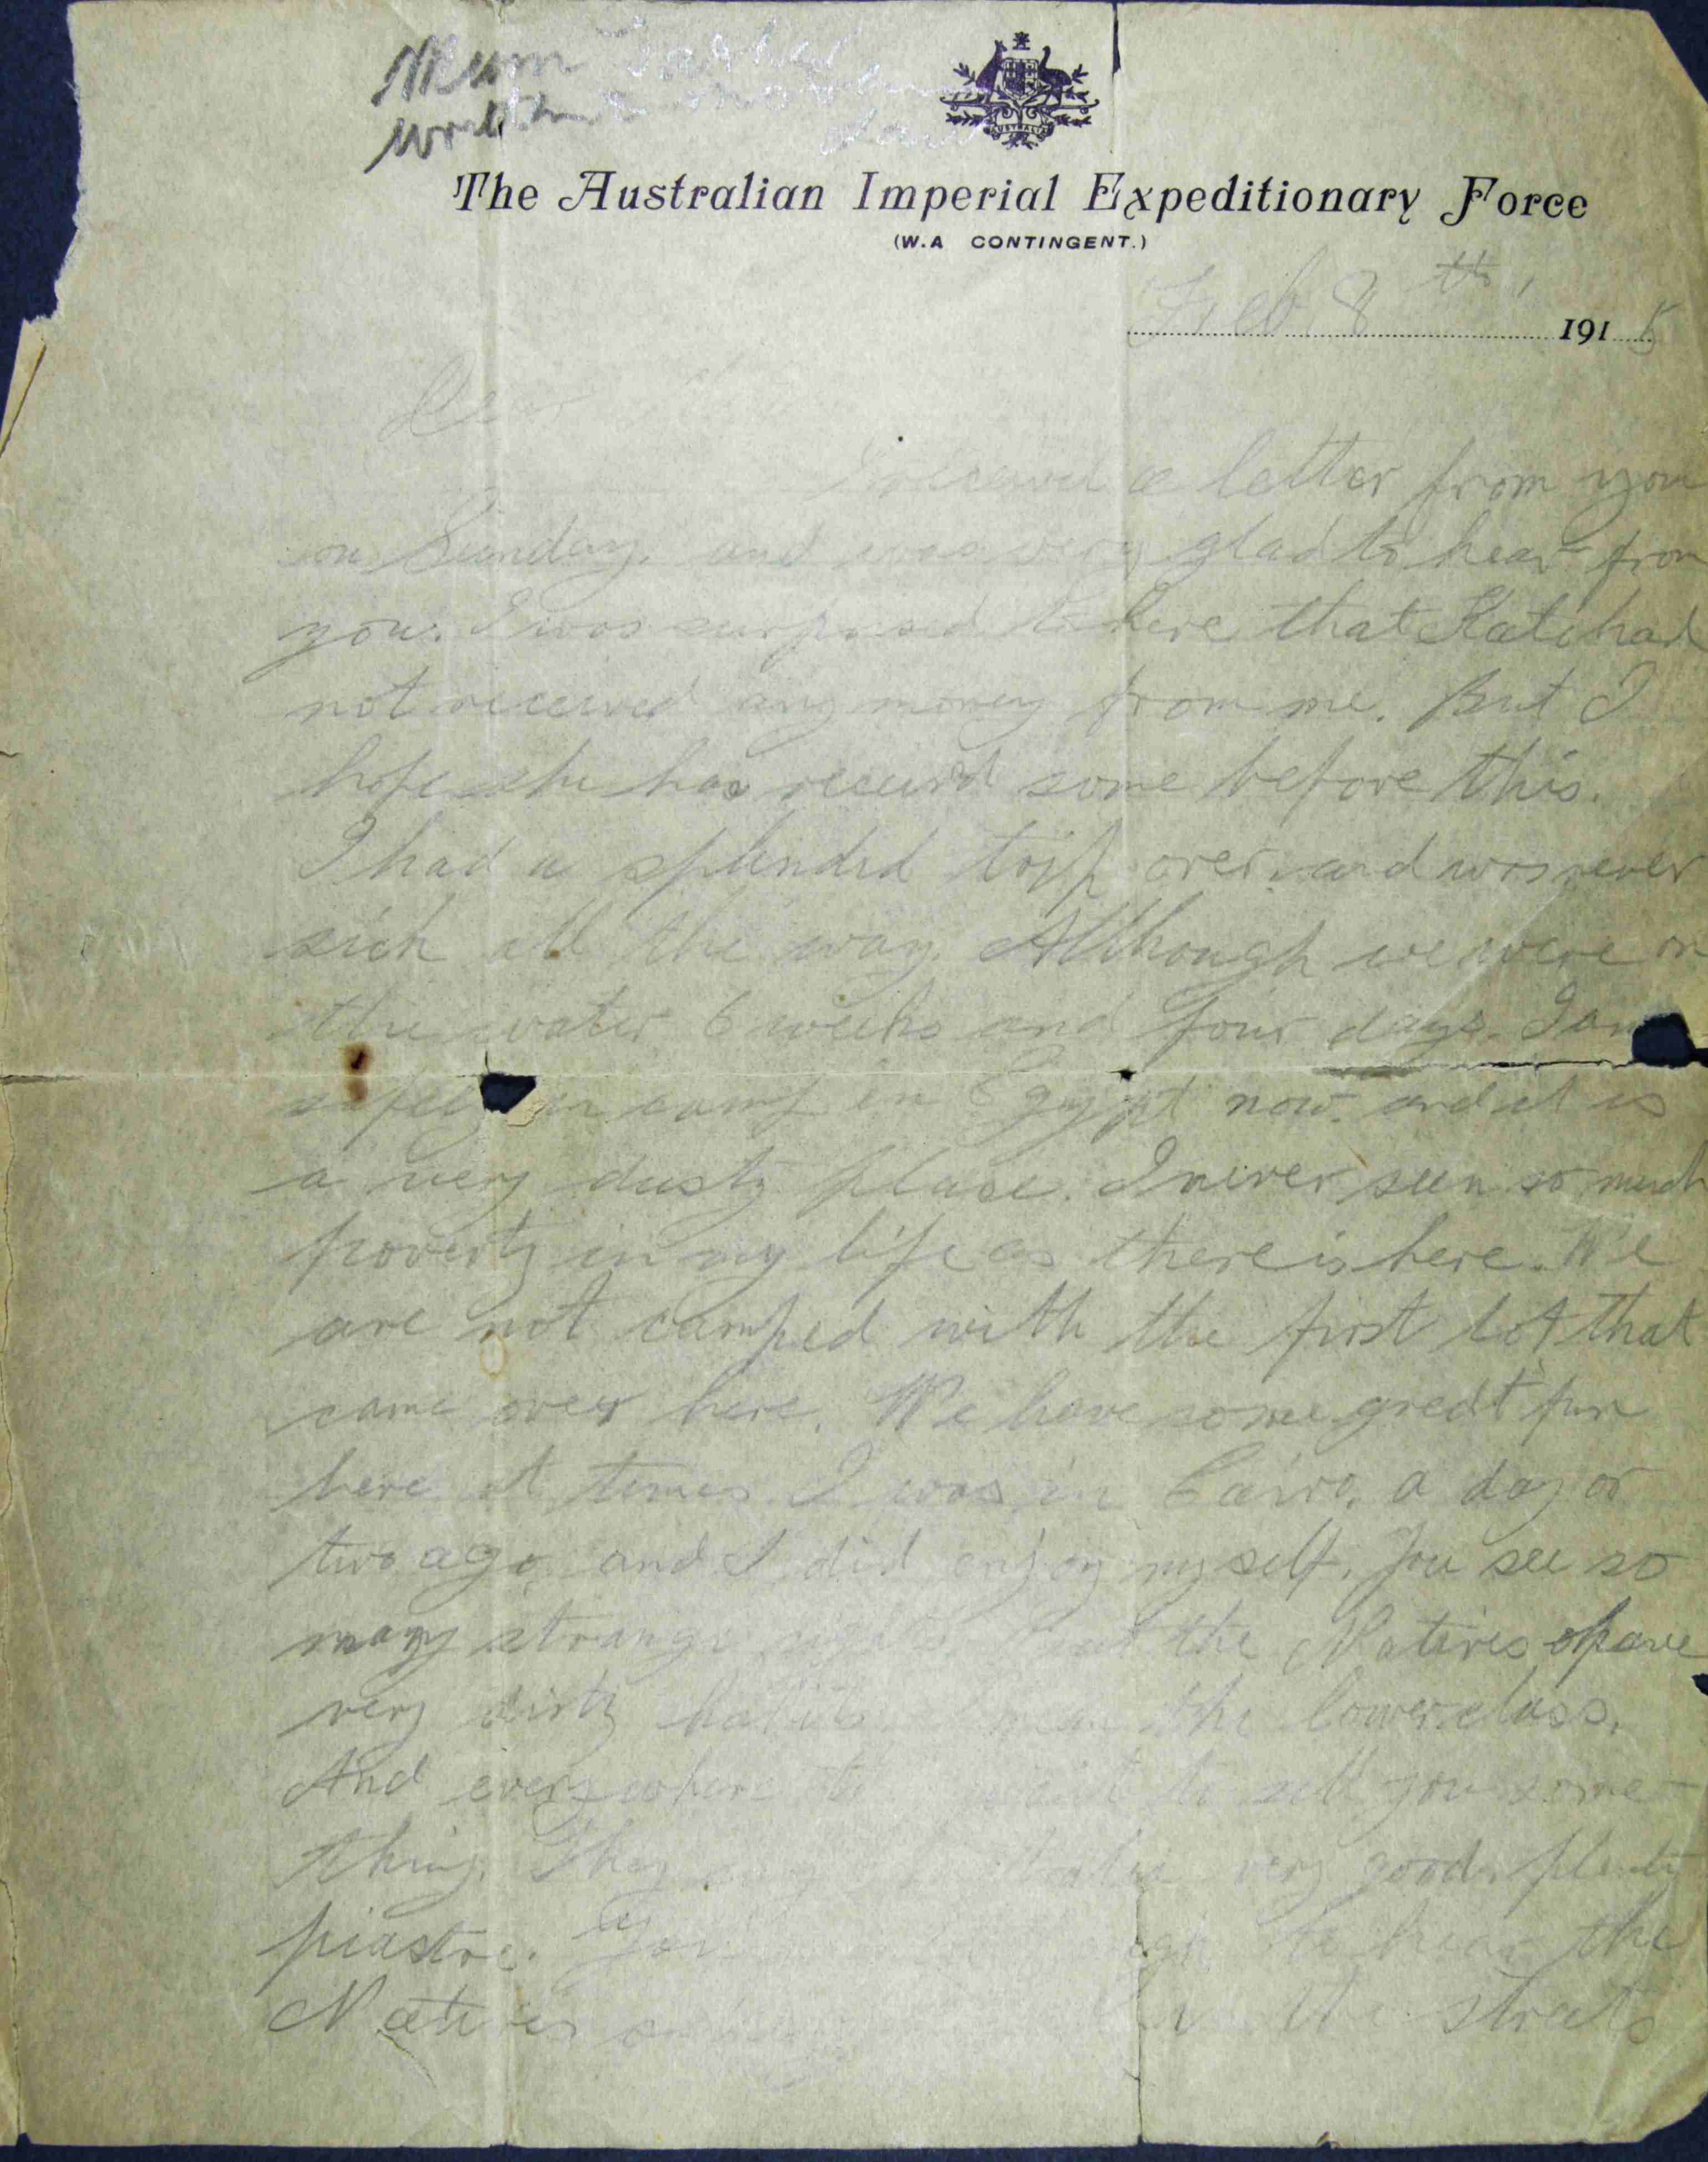 Mum
AUSTRALIA
The Australian Imperial Expeditionary Force
(W.A CONTINGENT.)
Feb 8th, 1915
Dear
I received a letter from you
on Sunday. and was very glad to hear from
you. I was surprised to here that Kate had
not received any money from me. But I
hope she has received some before this.
I had a splendid trip over. and was never
sick all the way. Although we were on
the water 6 weeks and four days. I am
safely in camp in Egypt now. and it is
a very dusty place. I never seen so much
poverty in my life as there is here. We
are not camped with the first lot that
came over here. We have some great fun
here at times. I was in Cairo. a day or
two ago. and I did enjoy myself. You see so
many strange sights. But the Natives have
very dirty habits I mean the lower class.
And everywhere they want to sell you some-
thing. They say very good. plenty
piastre. You to hear the
Natives in the streets